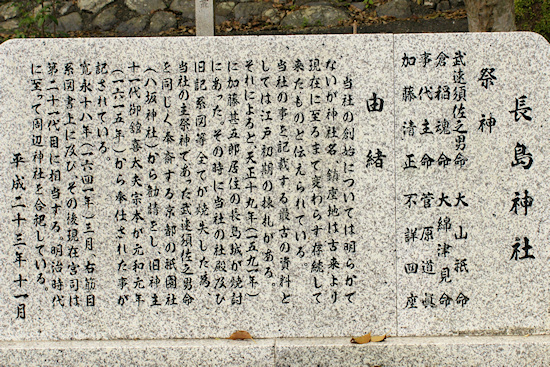 長島神社
祭神
武速須佐之男命 大山祇命
倉稲魂命 大綿津見命
事代主命 菅原道真
加藤清正 不詳四座
由緒
当社の創始については明らかで
ないが神社名、鎮座地は古来より
現在に至るまで変わらず存続して
来たものと伝えられている。
当社の事を記載する最古の資料と
しては江戸初期の棟札がある。
それによると、天正十九年(一五九一年)
に加藤甚五郎居住の長島城が焼討
にあった。その時に当社の社殿及び
旧記系図等全てが焼失した為、
当社の主祭神であった武速須佐之男命
を同じく奉斎する京都の祇園社
(八坂神社)から勧請をし、旧神主
十一代御舘喜太夫宗本が元和元年
(一六一五年)から奉仕された事が
記されている。
寛永十八年(一六四一年)三月 右筋目
系図書上に及び、その後現在宮司は
第二十一代目に相当する。明治時代
に至って周辺神社を合祀している。
平成二十三年十一月